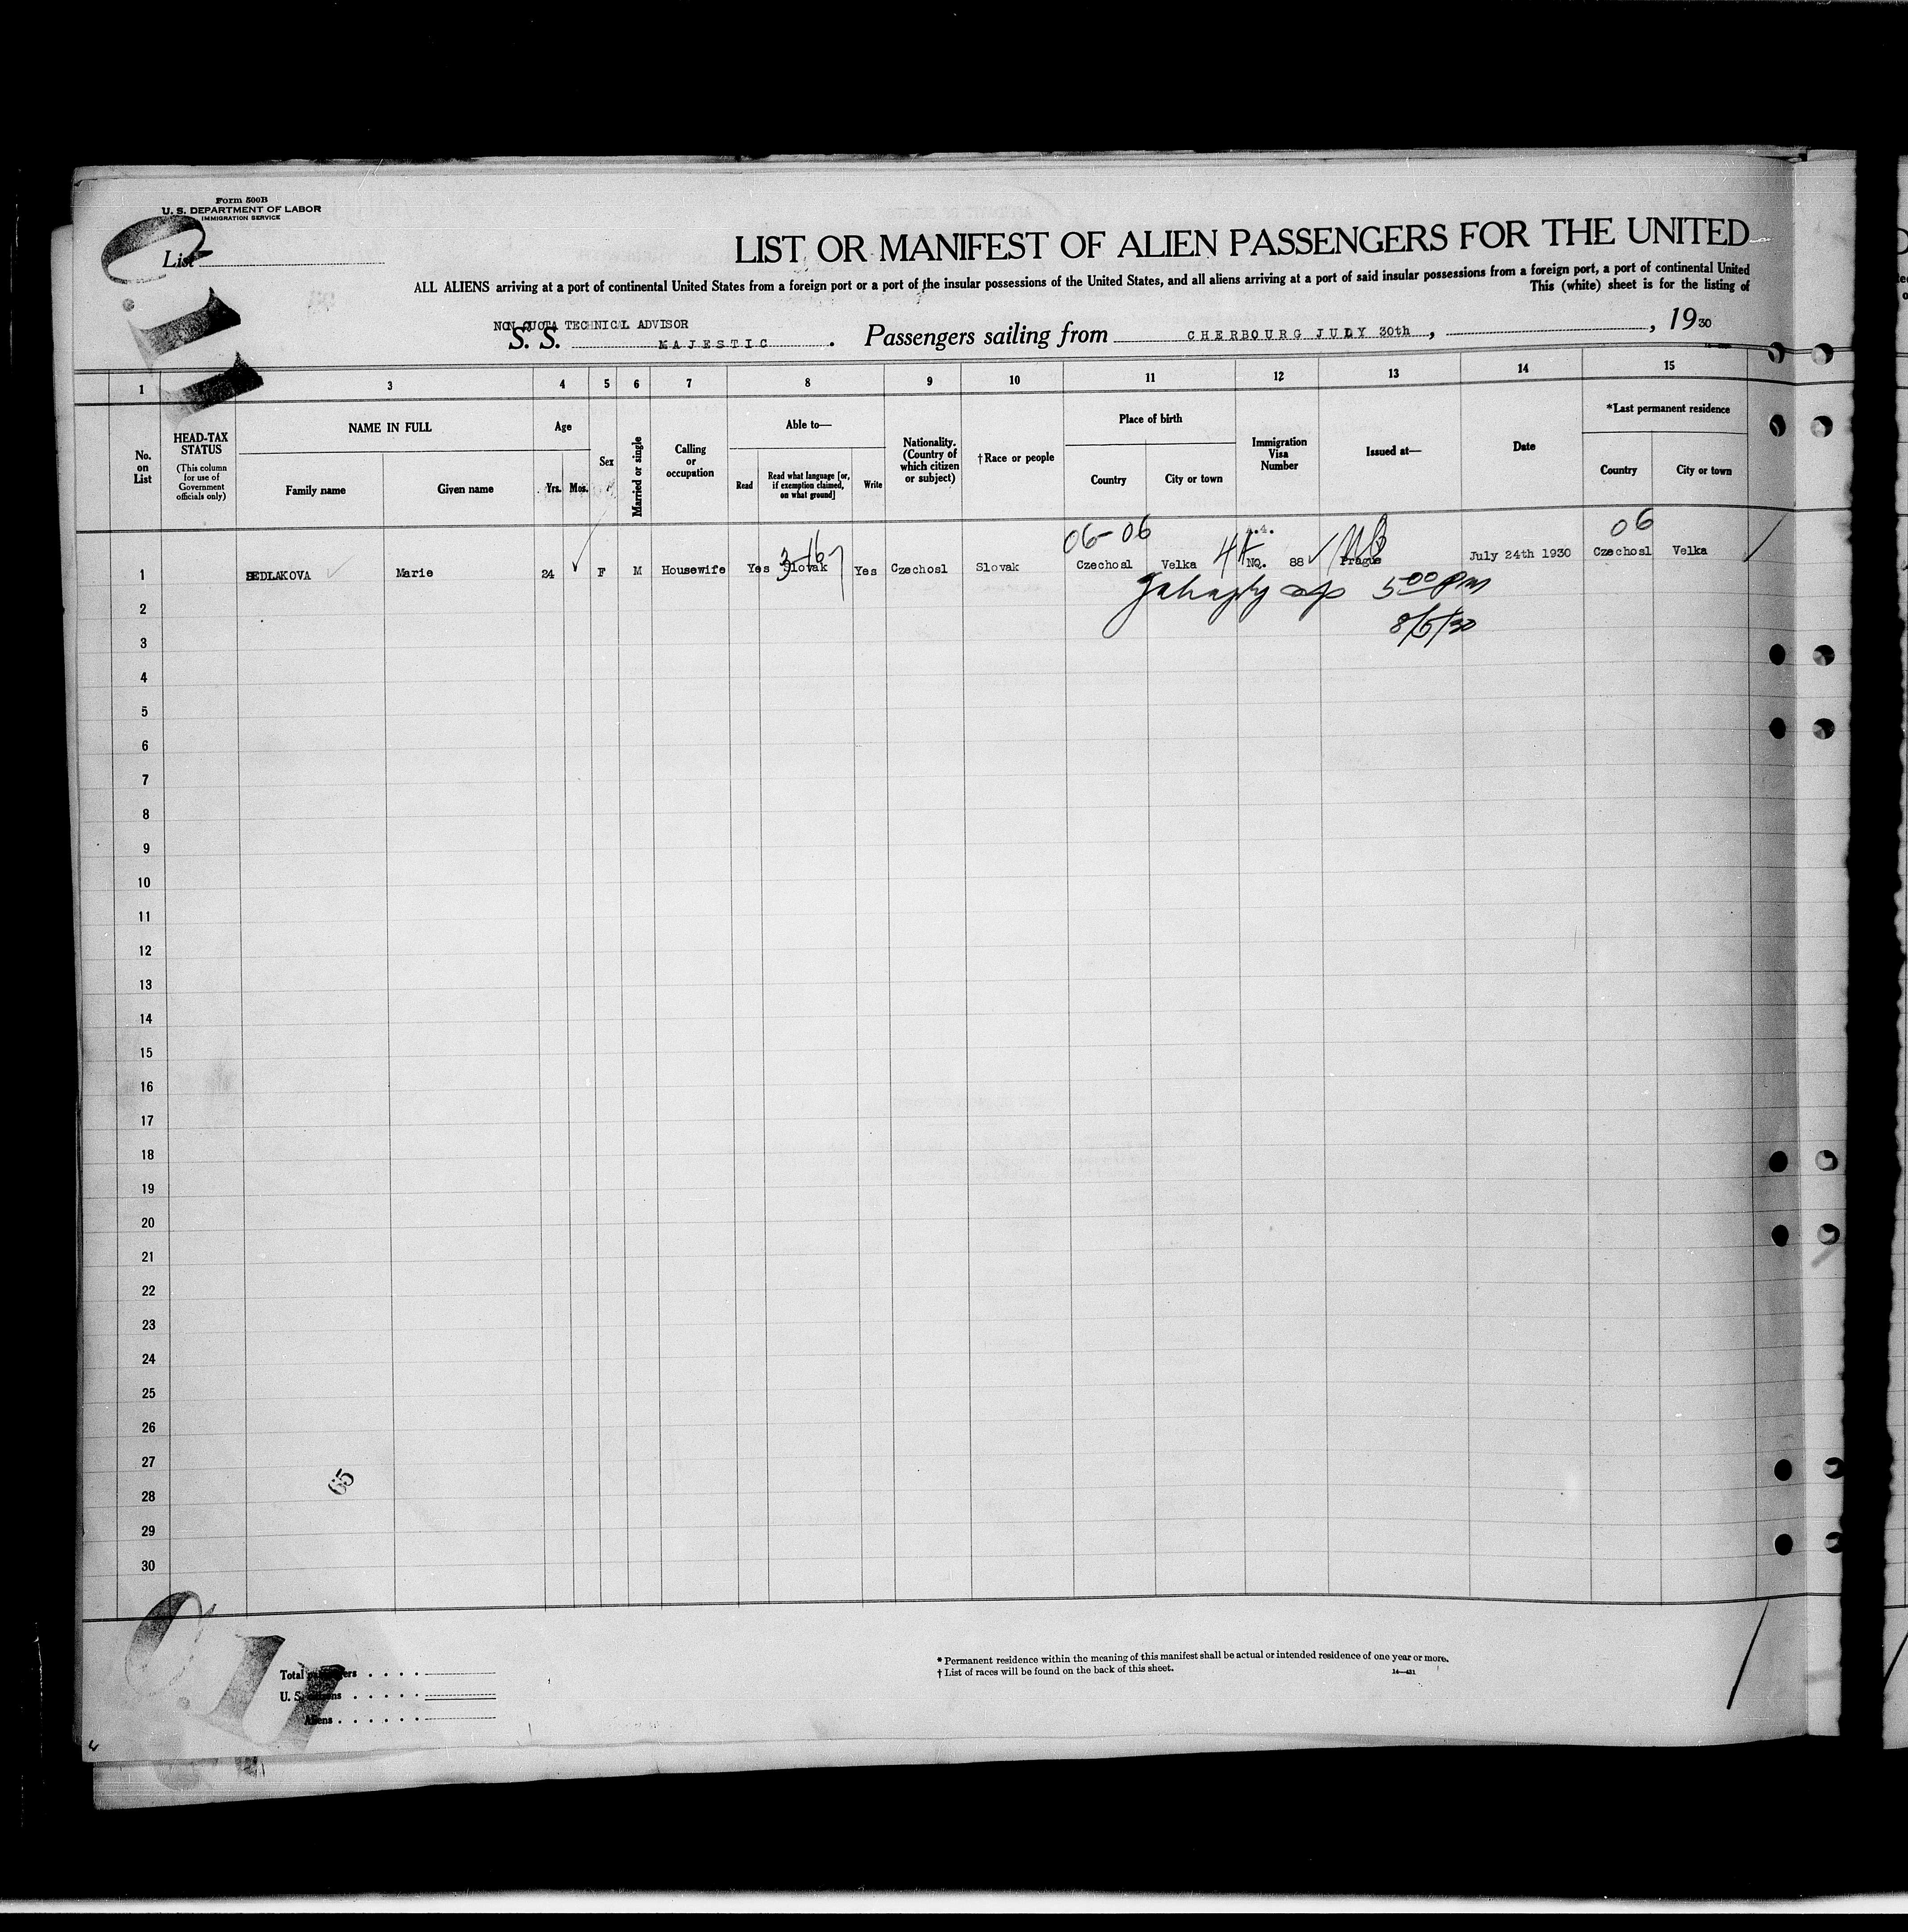 Form 500B
U. S. DEPARTMENT OF LABOR
IMMIGRATION SERVICE
List
LIST OR MANIFEST OF ALIEN PASSENGERS FOR THE UNITED
ALL ALIENS arriving at a port of continental United States from a foreign port or a port of the insular possessions of the United States, and all aliens arriving at a port of said insular possessions from a foreign port, a port of continental United
This (white) sheet is for the listing of
NON QUOTA TECHNICAL ADVISOR
S. S. MAJESTIC . Passengers sailing from CHERBOURG JULY 30th , , 1930
1 3 4 5 6 7 8 9 10 11 12 13 14 15
No. on List
HEAD-TAX STATUS
(This column for use of Government officials only)
NAME IN FULL
Family name Given name
Age
Yrs. Mos.
Sex
Married or single
Calling or occupation
Able to—
Read
Read what language [or, if exemption claimed, on what ground]
Write
Nationality. (Country of which citizen or subject)
†Race or people
Place of birth
Country City or town
Immigration Visa Number
Issued at—
Date
*Last permanent residence
Country City or town
06-06 06
1 SEDLAKOVA Marie 24 F M Housewife Yes Slovak Yes Czechosl Slovak Czechosl Velka NQ. 88 Prague July 24th 1930 Czechosl Velka
5 00 PM
2
8/5/30
3
4
5
6
7
8
9
10
11
12
13
14
15
16
17
18
19
20
21
22
23
24
25
26
27
65
28
29
30
Total passengers
U. S. citizens
Aliens
* Permanent residence within the meaning of this manifest shall be actual or intended residence of one year or more.
† List of races will be found on the back of this sheet.
14—431